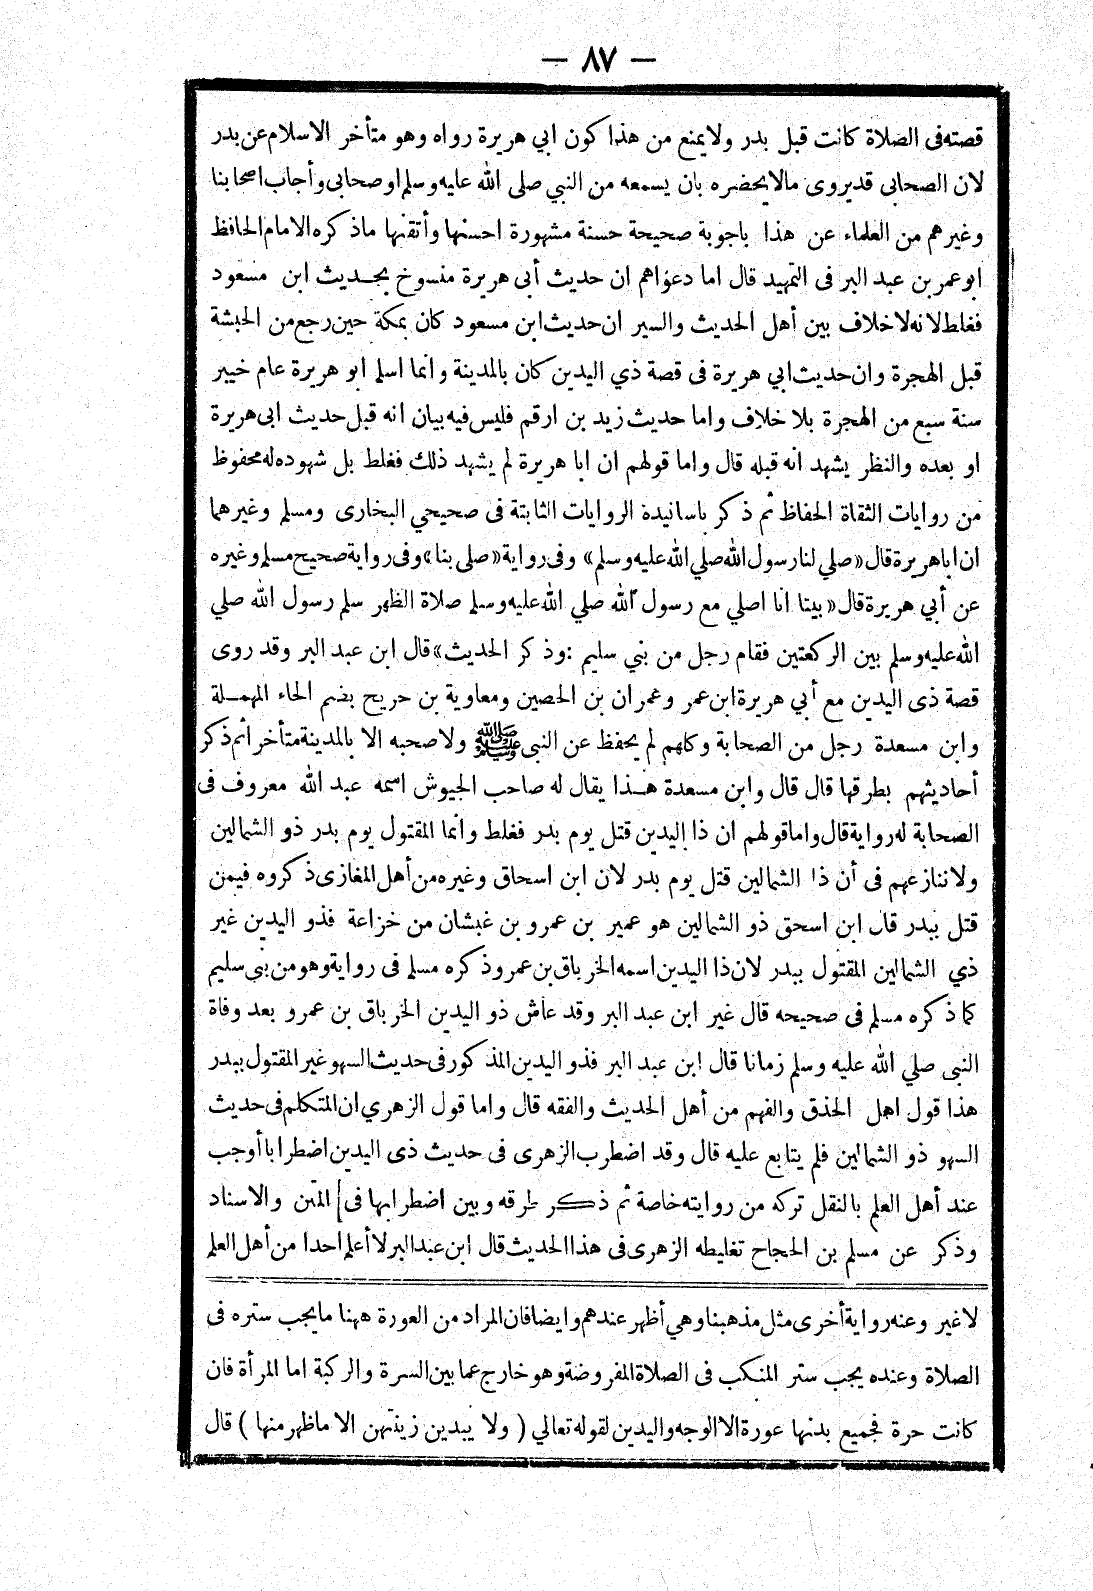 — ٨٧ —
قصته فى الصلاة كانت قبل بدر ولا يمنع من هذا كون ابي هريرة رواه وهو متأخر الاسلام عن بدر
لان الصحابى قد يروى مالا يحضره بان يسمعه من النبي صلى الله عليه وسلم او صحابى وأجاب اصحابنا
وغيرهم من العلماء عن هذا باجوبة صحيحة حسنة مشهورة احسنها وأتقنها ما ذكره الامام الحافظ
ابو عمر بن عبد البر فى التمهيد قال اما دعواهم ان حديث أبي هريرة منسوخ بحديث ابن مسعود
فغلط لانه لا خلاف بين أهل الحديث والسير ان حديث ابن مسعود كان بمكة حين رجع من الحبشة
قبل الهجرة وان حديث ابي هريرة فى قصة ذي اليدين كان بالمدينة وانما اسلم ابو هريرة عام خيبر
سنة سبع من الهجرة بلا خلاف واما حديث زيد بن ارقم فليس فيه بيان انه قبل حديث ابى هريرة
او بعده والنظر يشهد انه قبله قال واما قولهم ان ابا هريرة لم يشهد ذلك فغلط بل شهوده له محفوظ
من روايات الثقاة الحفاظ ثم ذكر باسانيدة الروايات الثابتة فى صحيحي البخارى ومسلم وغيرهما
ان ابا هريرة قال «صلي لنا رسول الله صلي الله عليه وسلم» وفى رواية «صلى بنا» وفى رواية صحيح مسلم وغيره
عن أبي هريرة قال «بينا انا اصلي مع رسول الله صلي الله عليه وسلم صلاة الظهر سلم رسول الله صلي
الله عليه وسلم بين الركعتين فقام رجل من بني سليم :وذكر الحديث» قال ابن عبد البر وقد روى
قصة ذى اليدين مع أبي هريرة ابن عمر وعمران بن الحصين ومعاوية بن حريج بضم الحاء المهملة
وابن مسعدة رجل من الصحابة وكلهم لم يحفظ عن النبى ﷺ ولا صحبه الا بالمدينة متأخرا ثم ذكر
أحاديثهم بطرقها قال قال وابن مسعدة هذا يقال له صاحب الجيوش اسمه عبد الله معروف فى
الصحابة له رواية قال واما قولهم ان ذا اليدين قتل يوم بدر فغلط وانما المقتول يوم بدر ذو الشمالين
ولا ننازعهم فى أن ذا الشمالين قتل يوم بدر لان ابن اسحاق وغيره من أهل المغازى ذكروه فيمن
قتل ببدر قال ابن اسحق ذو الشمالين هو عمير بن عمرو بن غبشان من خزاعة فذو اليدين غير
ذي الشمالين المقتول ببدر لان ذا اليدين اسمه الخرباق بن عمرو ذكره مسلم فى رواية وهو من بنى سليم
كما ذكره مسلم فى صحيحه قال غير ابن عبد البر وقد عاش ذو اليدين الخرباق بن عمرو بعد وفاة
النبى صلي الله عليه وسلم زمانا قال ابن عبد البر فذو اليدين المذكور فى حديث السهو غير المقتول ببدر
هذا قول اهل الحذق والفهم من أهل الحديث والفقه قال واما قول الزهري ان المتكلم فى حديث
السهو ذو الشمالين فلم يتابع عليه قال وقد اضطرب الزهرى فى حديث ذى اليدين اضطرابا أوجب
عند أهل العلم بالنقل تركه من روايته خاصة ثم ذكر طرقه وبين اضطرابها فى المتن والاسناد
وذكر عن مسلم بن الحجاج تغليطه الزهرى فى هذا الحديث قال ابن عبد البر لا أعلم احدا من أهل العلم
لا غير وعنه رواية أخرى مثل مذهبنا وهي أظهر عندهم وايضا فان المراد من العورة ههنا ما يجب ستره فى
الصلاة وعنده يجب ستر المنكب فى الصلاة المفروضة وهو خارج عما بين السرة والركبة اما المرأة فان
كانت حرة فجميع بدنها عورة الا الوجه واليدين لقوله تعالي ( ولا يبدين زينتهن الا ما ظهر منها ) قال